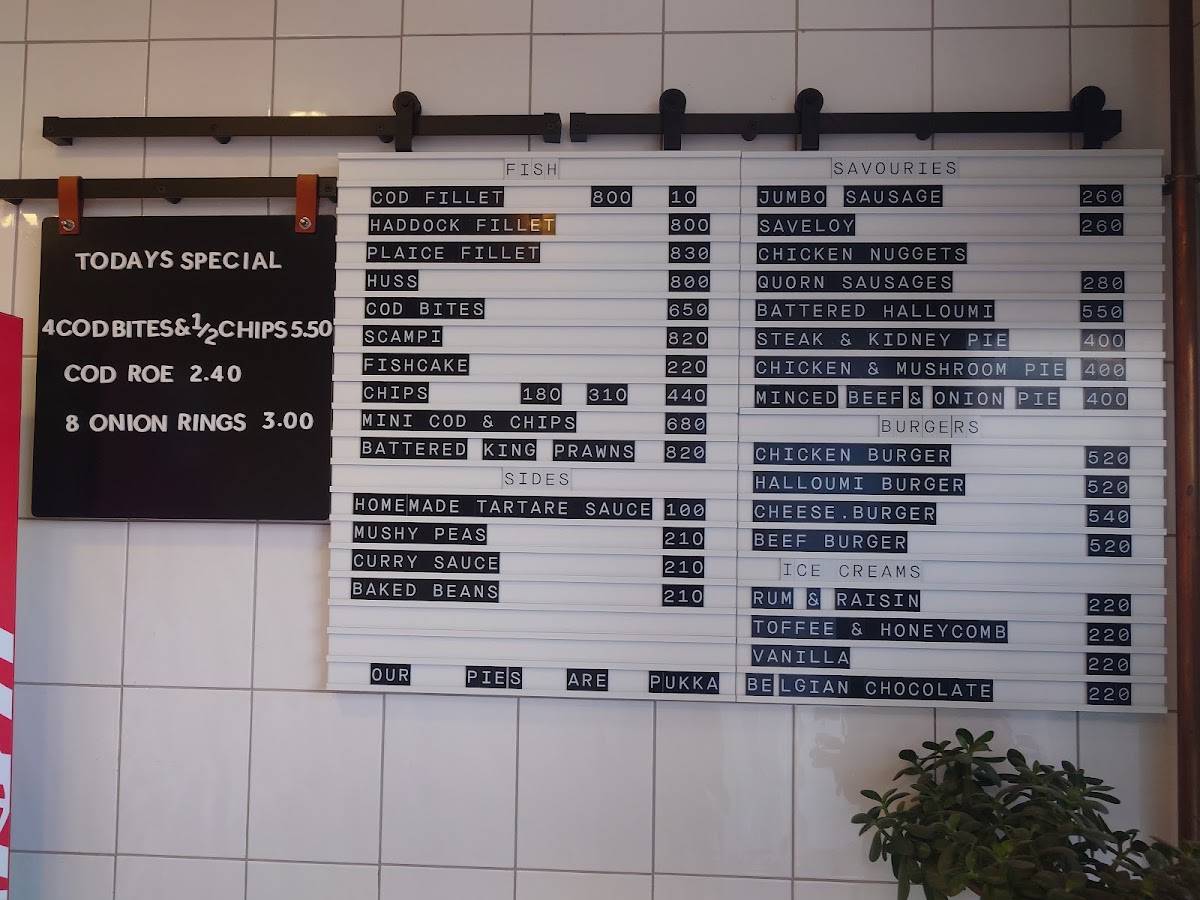 TODAYS SPECIAL
4 COD BITES & 1/2 CHIPS 5.50
COD ROE 2.40
8 ONION RINGS 3.00
FISH
COD FILLET 800 10
HADDOCK FILLET 800
PLAICE FILLET 830
HUSS 800
COD BITES 650
SCAMPI 820
FISHCAKE 220
CHIPS 180 310 440
MINI COD & CHIPS 680
BATTERED KING PRAWNS 820
SIDES
HOMEMADE TARTARE SAUCE 100
MUSHY PEAS 210
CURRY SAUCE 210
BAKED BEANS 210
OUR PIES ARE PUKKA
SAVOURIES
JUMBO SAUSAGE 260
SAVELOY 260
CHICKEN NUGGETS
QUORN SAUSAGES 280
BATTERED HALLOUMI 550
STEAK & KIDNEY PIE 400
CHICKEN & MUSHROOM PIE 400
MINCED BEEF & ONION PIE 400
BURGERS
CHICKEN BURGER 520
HALLOUMI BURGER 520
CHEESE.BURGER 540
BEEF BURGER 520
ICE CREAMS
RUM & RAISIN 220
TOFFEE & HONEYCOMB 220
VANILLA 220
BELGIAN CHOCOLATE 220